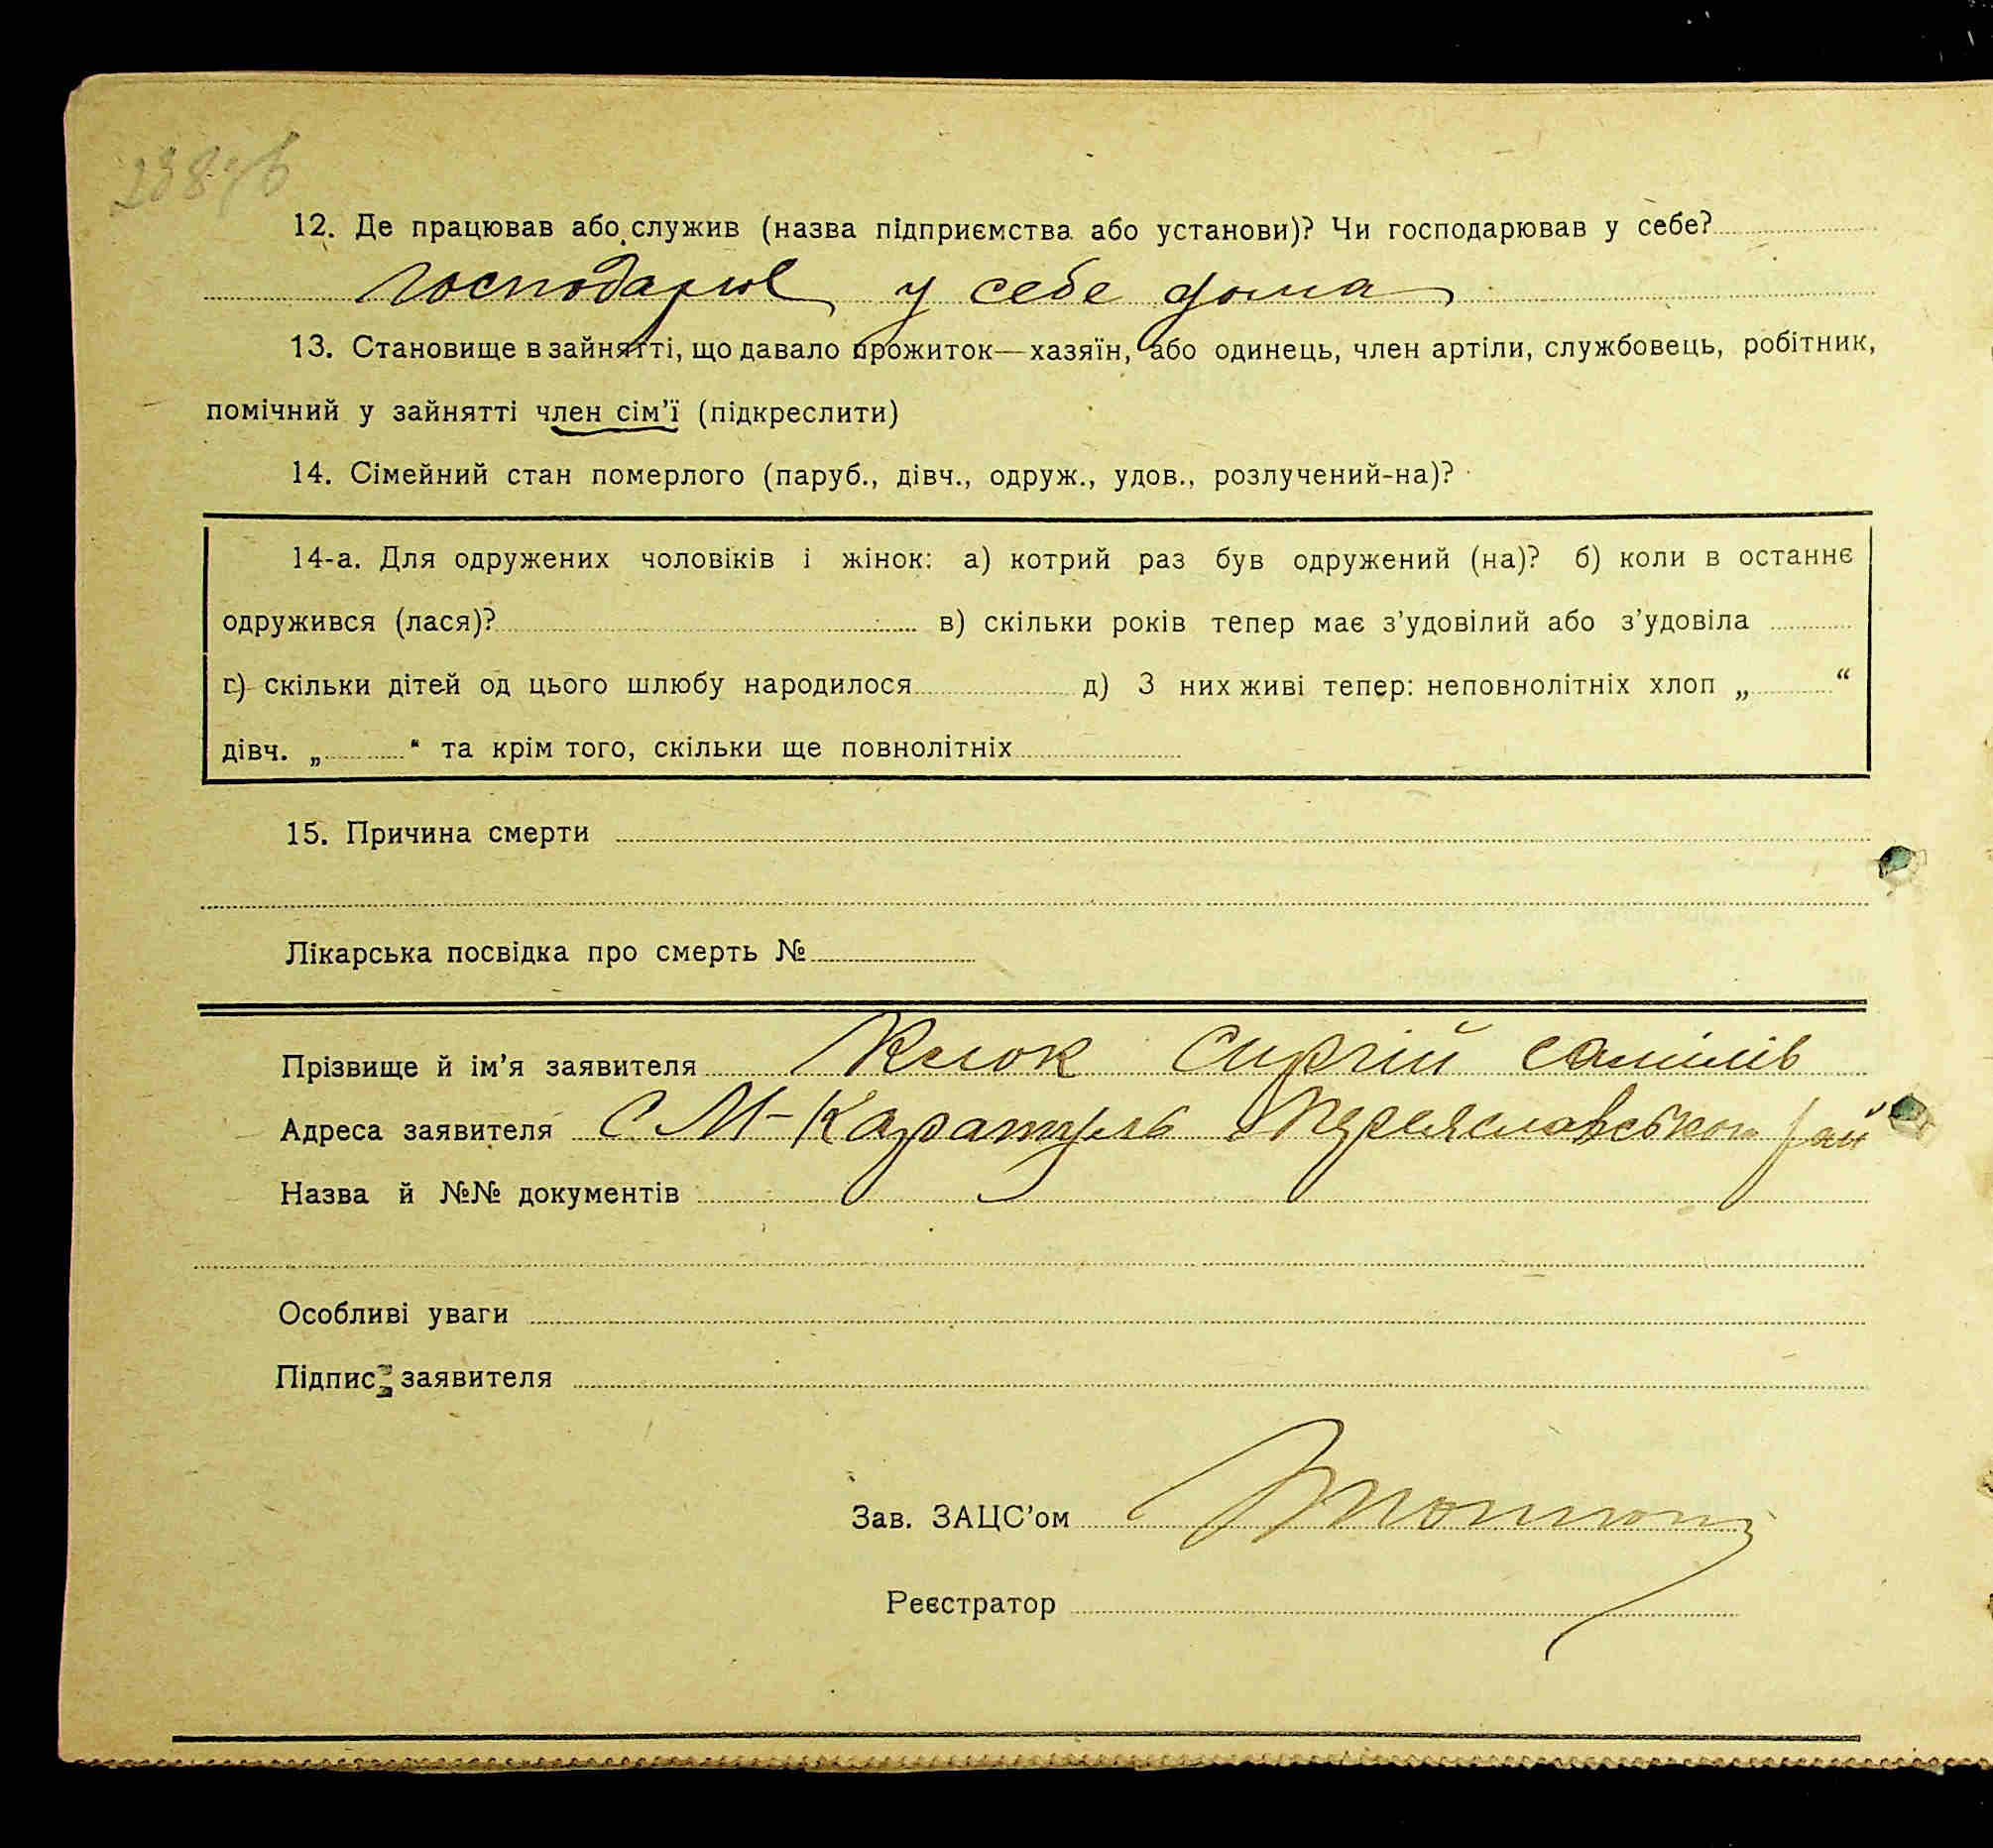 12. Де працював або служив (назва підприємства або установи)? Чи господарював у себе?
Господарює у себе дома
13. Становище в зайнятті, що давало прожиток—хазяїн, або одинець, член артіли, службовець, робітник,
помічний у зайнятті член сім’ї (підкреслити)
14. Сімейний стан померлого (паруб., дівч., одруж., удов., розлучений-на)?
14-а. Для одружених чоловіків і жінок: а) котрий раз був одружений (на)? б) коли в останнє
одружився (лася)? в) скільки років тепер має з’удовілий або з’удовіла
г) скільки дітей од цього шлюбу народилося д) З них живі тепер: неповнолітніх хлоп „ “
дівч. „ “ та крім того, скільки ще повнолітніх
15. Причина смерти
Лікарська посвідка про смерть №
Прізвище й ім’я заявителя Клюк Сиргій
Адреса заявителя С М-Каратуль Переяславського рай
Назва й №№ документів
Особливі уваги
Підпис заявителя
Зав. ЗАЦС’ом
Реєстратор